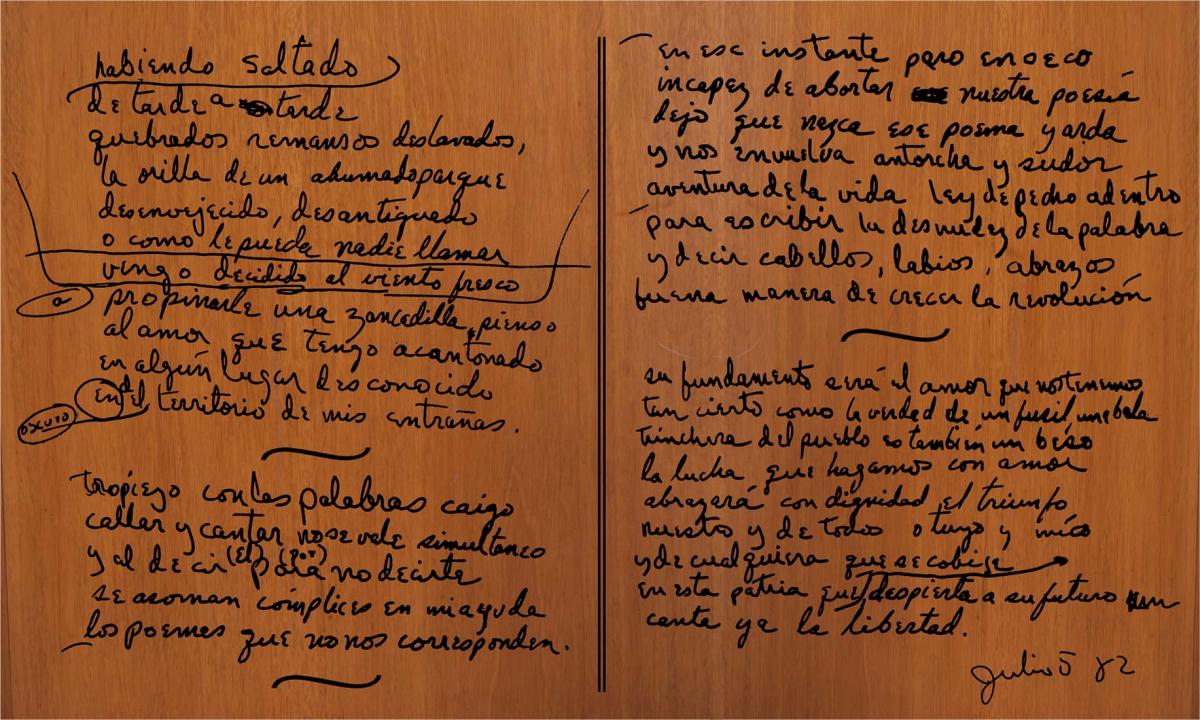 habiendo saltado
de tarde a tarde
quebrados remansos deslavados,
la orilla de un ahumado parque
desenvejecido, desantiguado
o como le pueda nadie llamar
vengo decidido al viento fresco
a propinarle una zancadilla, pienso
al amor que tengo acantonado
en algún lugar desconocido
en el territorio de mis entrañas.
oscuro
tropiezo con las palabras caigo
callar y cantar no se vale simultaneo
y al decir (el) (por) para no decirte
se asoman cómplices en mi ayuda
los poemas que no nos corresponden.
en ese instante paro en seco
incapaz de abortar nuestra poesía
dejo que nazca ese poema y arda
y nos envuelva antorcha y sudor
aventura de la vida ley de pecho adentro
para escribir la desnudez de la palabra
y decir cabellos, labios, abrazos
buena manera de crecer la revolución
su fundamento será el amor que nos tenemos
tan cierto como la verdad de un fusil, una bala
trinchera del pueblo es también un beso
la lucha que hagamos con amor
abrazará con dignidad el triunfo
nuestro y de todos o tuyo y mío
y de cualquiera que se cobije
en esta patria que despierta a su futuro
canta ya la libertad.
Julio 5 82